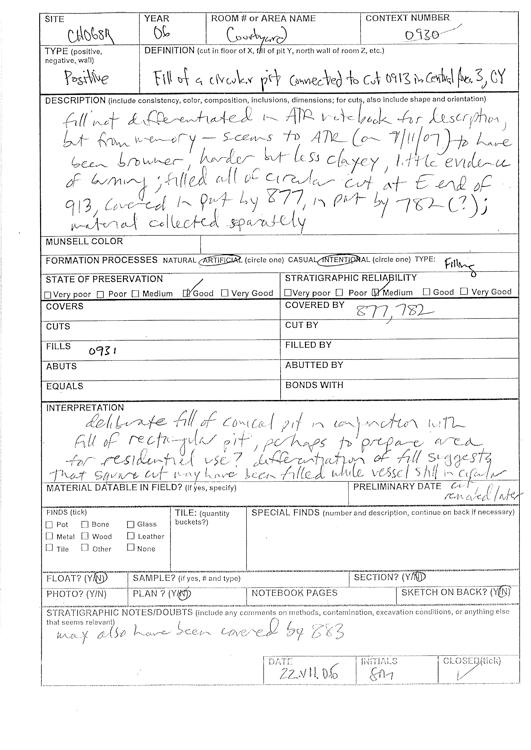 SITE YEAR ROOM # or AREA NAME CONTEXT NUMBER
CH06SR 06 Courtyard 0930
TYPE (positive, negative, wall) DEFINITION (cut in floor of X, fill of pit Y, north wall of room Z, etc.)
Positive Fill of a circular pit connected to cut 0913 in Central Area 3, CY
DESCRIPTION (include consistency, color, composition, inclusions, dimensions; for cuts, also include shape and orientation)
fill not differentiated in ATR notebook for description,
but from memory – seems to ATR (on 7/11/07) to have
been browner, harder but less clayey, little evidence
of burning; filled all of circular cut at E end of
913, covered in part by 877, in part by 782 (?);
material collected separately
MUNSELL COLOR
FORMATION PROCESSES NATURAL ARTIFICIAL (circle one) CASUAL INTENTIONAL (circle one) TYPE: Filling
STATE OF PRESERVATION STRATIGRAPHIC RELIABILITY
Very poor Poor Medium Good Very Good Very poor Poor Medium Good Very Good
COVERS COVERED BY 877, 782
CUTS CUT BY
FILLS 0931 FILLED BY
ABUTS ABUTTED BY
EQUALS BONDS WITH
INTERPRETATION
deliberate fill of conical pit in conjunction with
fill of rectangular pit, perhaps to prepare area
for residential use? differentiation of fill suggests
that square cut may have been filled while vessel still in circular
cut
MATERIAL DATABLE IN FIELD? (if yes, specify) PRELIMINARY DATE
rotated later
FINDS (tick) TILE: (quantity buckets?) SPECIAL FINDS (number and description, continue on back if necessary)
Pot Bone Glass
Metal Wood Leather
Tile Other None
FLOAT? (Y/N) SAMPLE? (if yes, # and type) SECTION? (Y/N)
PHOTO? (Y/N) PLAN ? (Y/N) NOTEBOOK PAGES SKETCH ON BACK? (Y/N)
STRATIGRAPHIC NOTES/DOUBTS (include any comments on methods, contamination, excavation conditions, or anything else that seems relevant)
may also have been covered by 883
DATE INITIALS CLOSED(tick)
22.VII.06